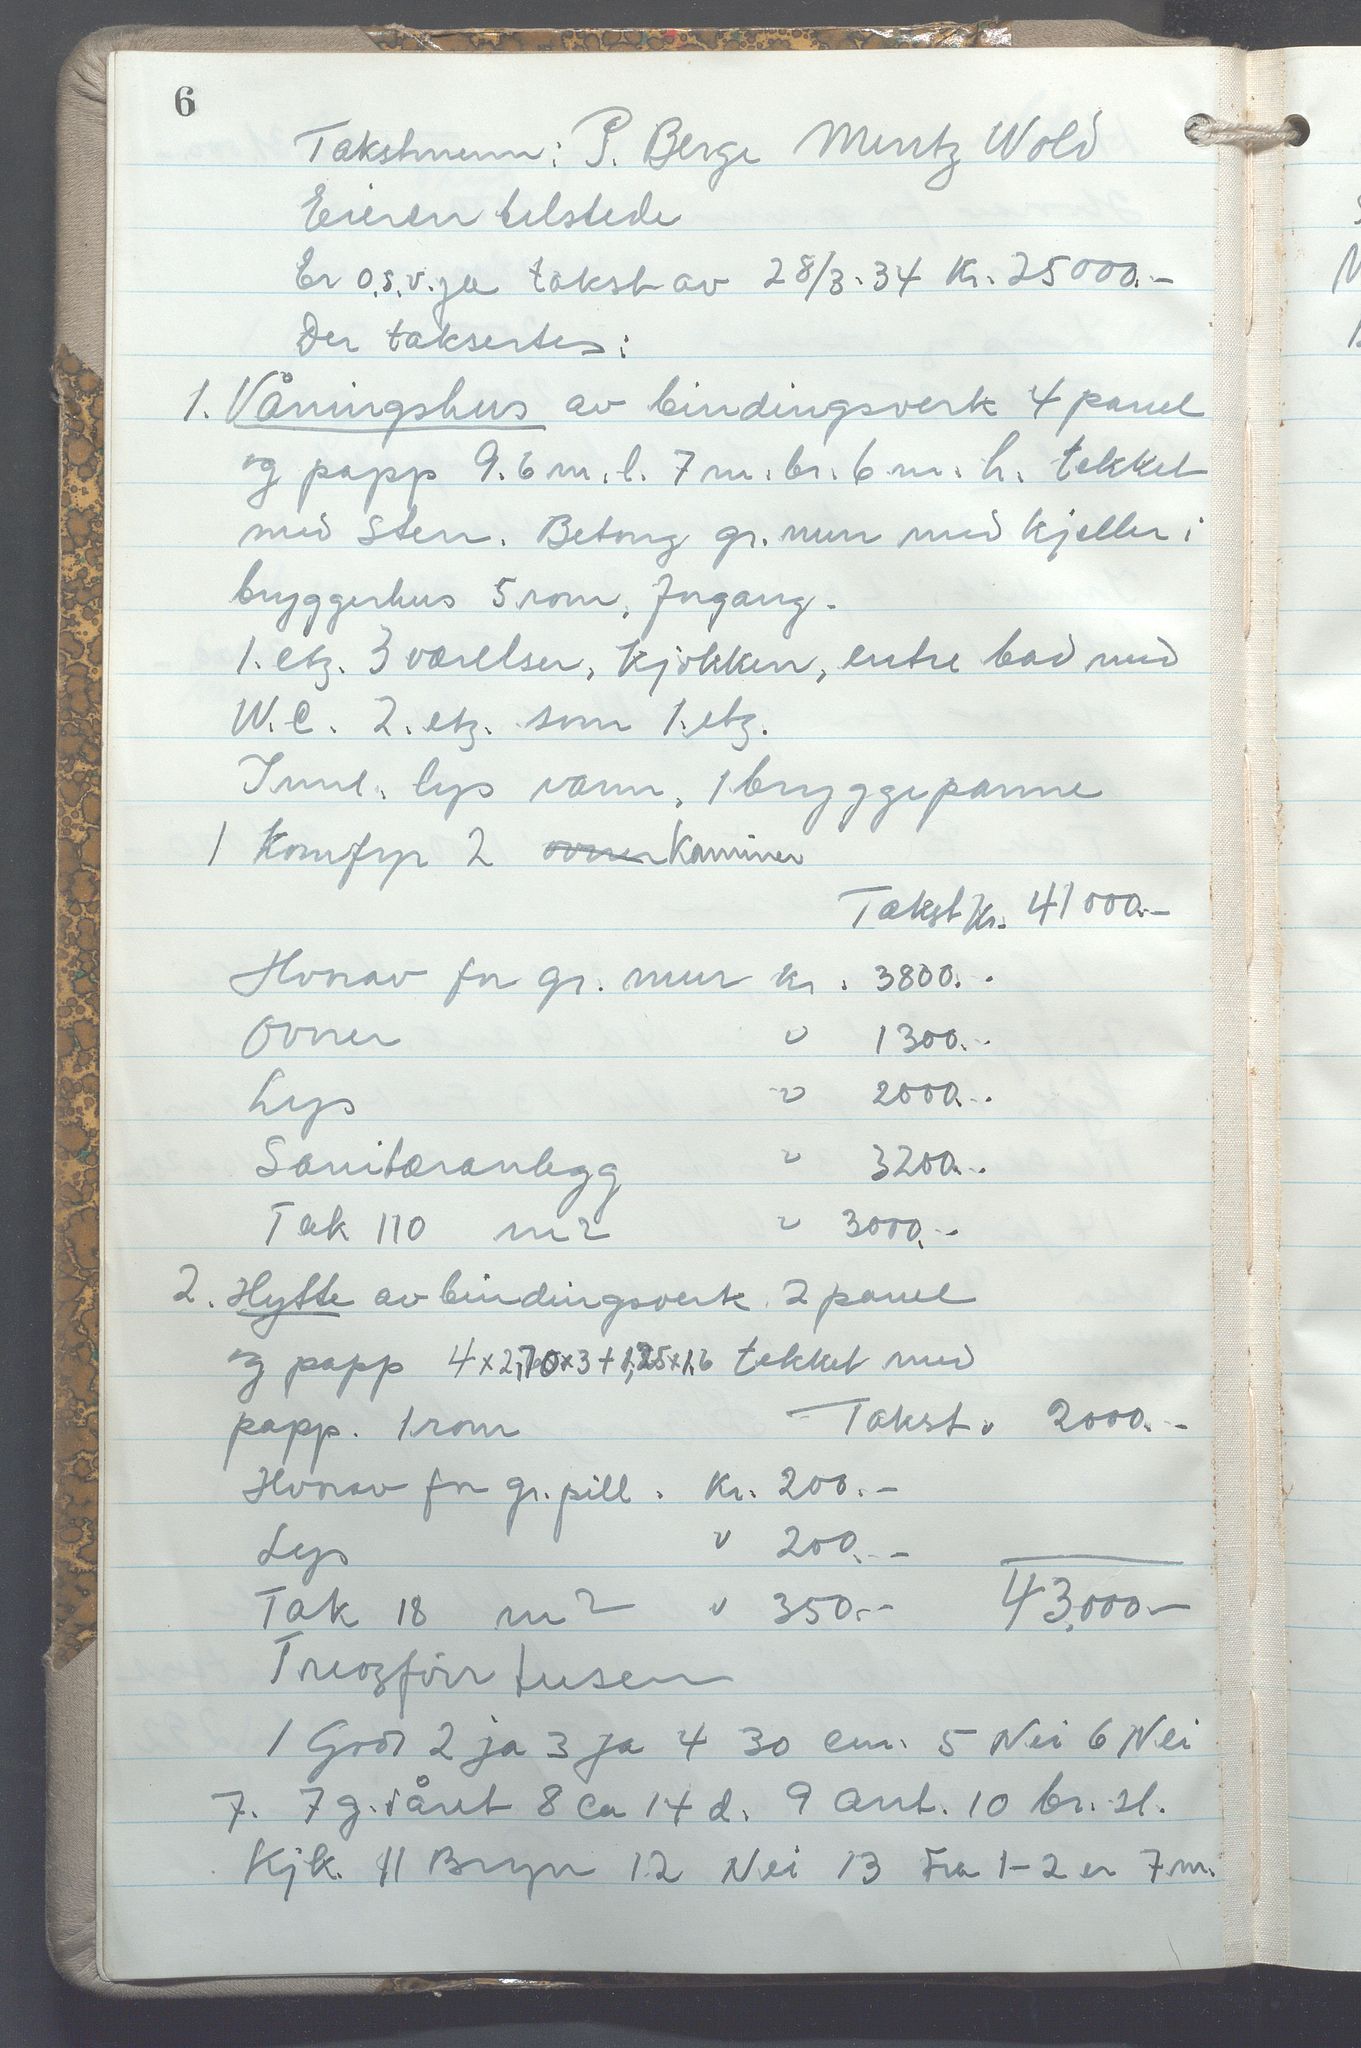 6
Takstmenn: P. Berge Mentz Wold
Eieren tilstede
Er o.s.v. ja takst av 28/3. 34 Kr. 25000.-
Der taksertes:
1. Våningshus av bindingsverk 4 panel
og papp 9.6 m. l. 7 m. br. 6 m. h. tekket
med sten. Betong gr. mur med kjeller i
bryggerhus 5 rom, forgang.
1. etg. 3 værelser, kjøkken, entre bad med
W.C. 2. etg. som 1. etg.
Innl. lys vann, 1 bryggepanne
1 Komfyr 2 ovner Kaminer
Takst Kr. 41000.-
Hvorav for gr. mur kr. 3800.-
Ovner " 1300.-
Lys " 2000.-
Sanitæranlegg " 3200.-
Tak 110 m2 " 3000.-
2. Hytte av bindingsverk 2 panel
og papp 4x2,70x3+1,25x1,6 tekket med
papp. 1 rom Takst " 2000.-
Hvorav for gr. pill. Kr. 200.-
Lys " 200.-
Tak 18 m2 " 350.- 43,000.-
Treogfirr tusen
1 God 2 ja 3 ja 4 30 cm. 5 Nei 6 Nei
7. 7 g. i året 8 ca 14 d. 9 Ant. 10 br. sl.
Kjk. 11 Bryn 12 Nei 13 Fra 1-2 er 7 m.